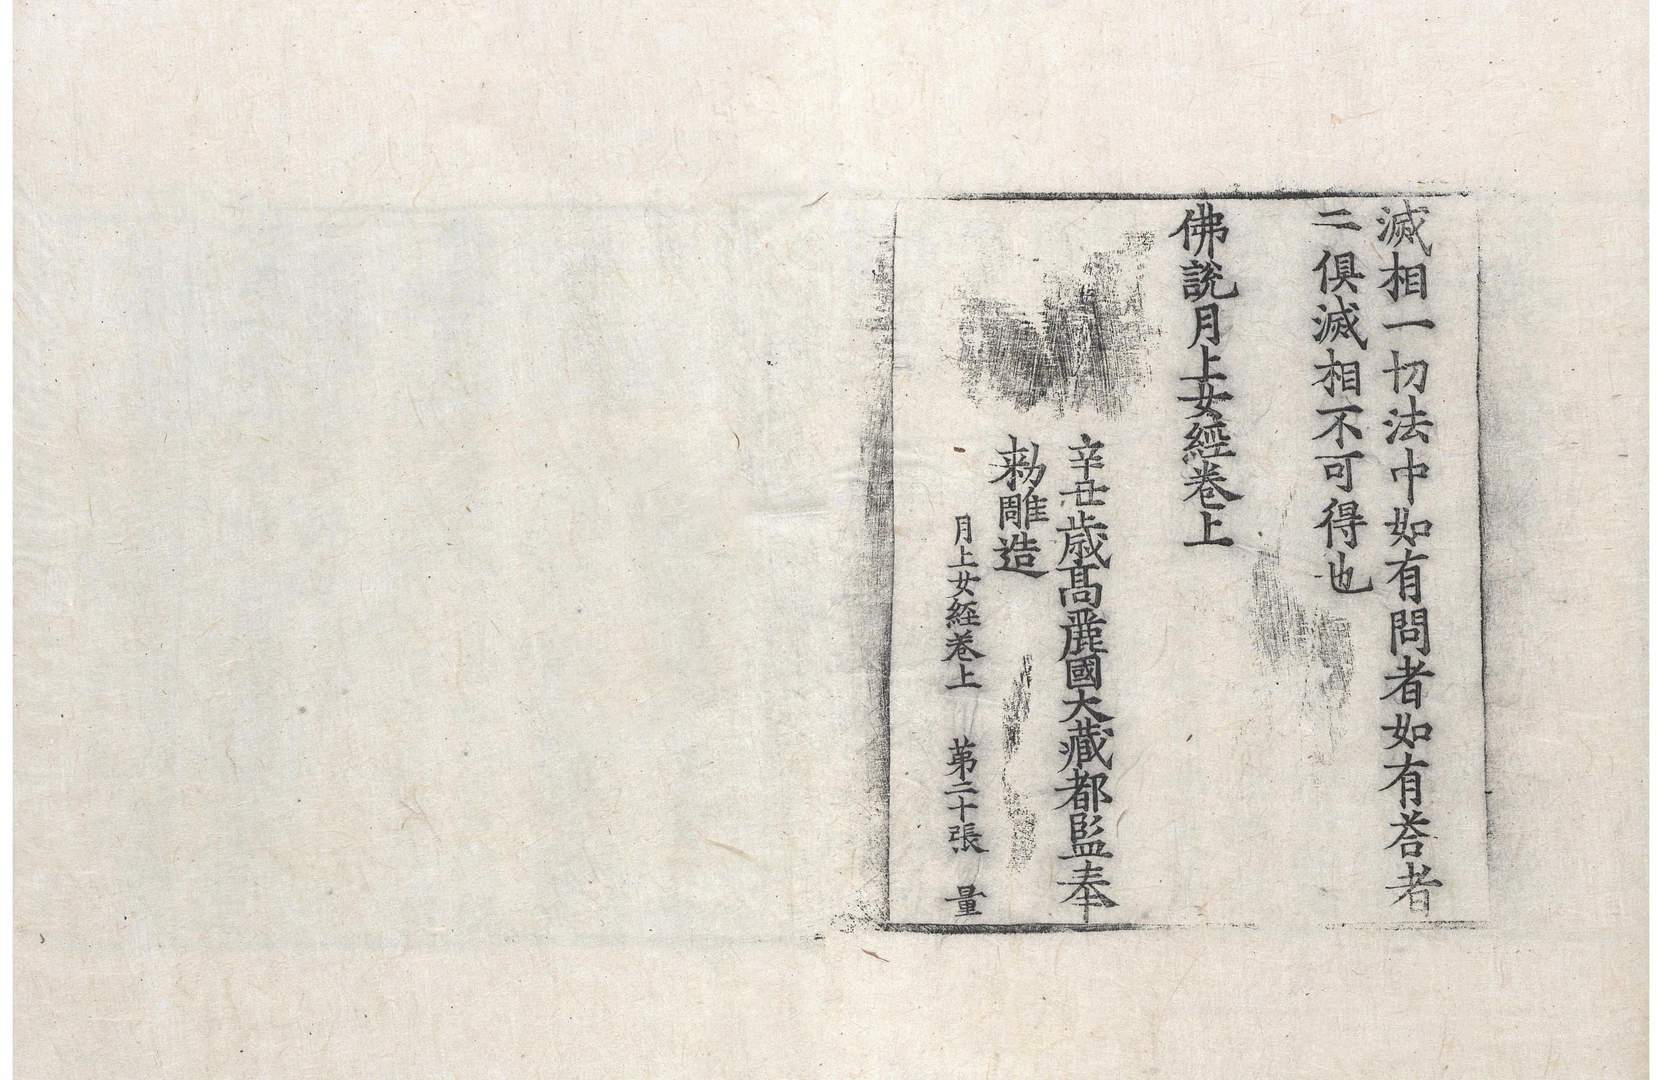 滅相一切法中如有問者如有荅者
二俱滅相不可得也
佛說月上女經卷上
辛丑歲高麗國大藏都監奉
勑雕造
月上女経卷上 第二十張 量